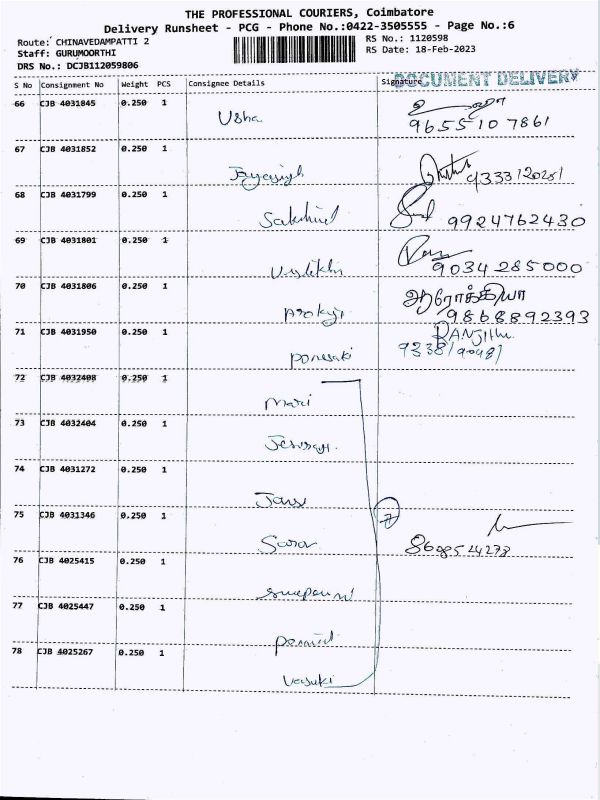 THE PROFESSIONAL COURIERS, Coimbatore
Delivery Runsheet - PCG - Phone No.:0422-3505555 - Page No.:6
Route: CHINAVEDAMPATTI 2
RS No.: 1120598
Staff: GURUMOORTHI
RS Date: 18-Feb-2023
DRS No.: DCJB112059806
DOCUMENT DELIVERY
S No Consignment No Weight PCS Consignee Details Signature
66 CJB 4031845 0.250 1 Usha
9655107861
67 CJB 4031852 0.250 1
68 CJB 4031799 0.250 1
9924762430
69 CJB 4031801 0.250 1
9034285000
70 CJB 4031806 0.250 1 ஆரோக்கியா
9868892393
71 CJB 4031950 0.250 1 Ponesaki RANJITH
72 CJB 4032408 0.250 1 Mari
73 CJB 4032404 0.250 1
74 CJB 4031272 0.250 1
7
75 CJB 4031346 0.250 1
8608524278
76 CJB 4025415 0.250 1
77 CJB 4025447 0.250 1
78 CJB 4025267 0.250 1 Vasuki